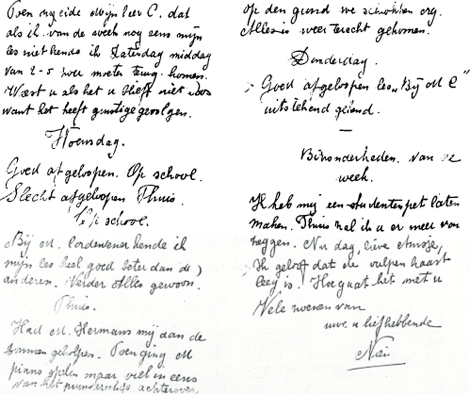 Toen zeide Mijnheer C. dat
als ik van de week nog eens mijn
les niet kende ik Zaterdag middag
van 2-5 zou moeten terug komen.
Weest u als het u blieft niet boos
want het heeft gunstige gevolgen.
Woensdag.
Goed afgeloopen. Op school.
Slecht afgeloopen Thuis.
Op school.
Bij M. kende ik
mijn les heel goed beter dan de
anderen. Verder Alles gewoon.
Thuis.
Had M. Hermans mij dan de
sommen geholpen. Toen ging M
piano spelen maar viel in eens
van het achterover
op den grond we schrokken erg.
Alles is weer terecht gekomen.
Donderdag.
Goed afgeloopen les „Bij M C"
uitstekend gekend.
—
Bizonderheden. van de
week.
Ik heb mij een studentenpet laten
maken. Thuis zal ik u er meer van
zeggen. Nu dag, lieve
Ik geloof dat de vulpen haast
leeg is. Hoe gaat het met u
Vele zoenen van
uwe u liefhebbende